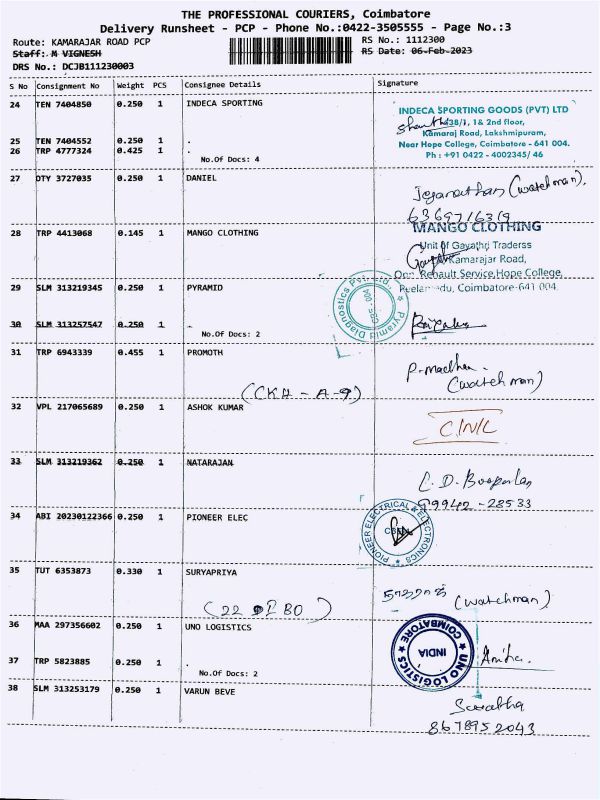 THE PROFESSIONAL COURIERS, Coimbatore
Delivery Runsheet - PCP - Phone No.:0422-3505555 - Page No.:3
Route: KAMARAJAR ROAD PCP RS No.: 1112300
Staff: M VIGNESH RS Date: 06-Feb-2023
DRS No.: DCJB111230003
S No Consignment No Weight PCS Consignee Details Signature
24 TEN 7404850 0.250 1 INDECA SPORTING
INDECA SPORTING GOODS (PVT) LTD
38/1, 1& 2nd floor,
Kamaraj Road, Lakshmipuram,
Near Hope College, Coimbatore - 641 004.
Ph : +91 0422 - 4002345/ 46
25 TEN 7404552 0.250 1 .
26 TRP 4777324 0.425 1 .
No.Of Docs: 4
27 DTY 3727035 0.250 1 DANIEL
Jeganathan (watchman).
6369716319
28 TRP 4413068 0.145 1 MANGO CLOTHING
MANGO CLOTHING
Unit of Gayathri Traderss
Kamarajar Road,
Opp. Renault Service, Hope College,
Peelamedu, Coimbatore-641 004.
29 SLM 313219345 0.250 1 PYRAMID
Pyramid Diagnostics Pvt. Ltd.
CBE - 004
30 SLM 313257547 0.250 1 .
No.Of Docs: 2
31 TRP 6943339 0.455 1 PROMOTH
(CKH - A - 9)
P. madhu.
(watchman)
32 VPL 217065689 0.250 1 ASHOK KUMAR
C.IN/L
33 SLM 313219362 0.250 1 NATARAJAN
99942 - 28533
34 ABI 20230122366 0.250 1 PIONEER ELEC
PIONEER ELECTRICAL & ELECTRONICS
35 TUT 6353873 0.330 1 SURYAPRIYA
(watchman)
36 MAA 297356602 0.250 1 UNO LOGISTICS
UNO LOGISTICS
COIMBATORE
INDIA
Anitha
37 TRP 5823885 0.250 1 .
No.Of Docs: 2
38 SLM 313253179 0.250 1 VARUN BEVE
8678952043